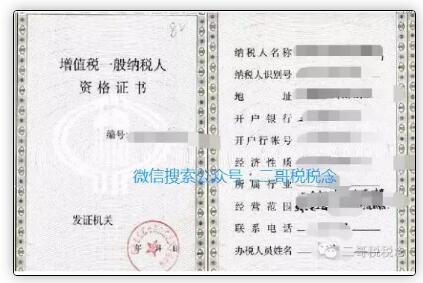 增值税一般纳税人
资格证书
编号
发证机关
纳税人名称
纳税人识别号
地 址
开户银行
开户行帐号
经济性质
所属行业
经营范围
联系电话
办税人员姓名
微信搜索公众号:二哥税税念
二哥税税念